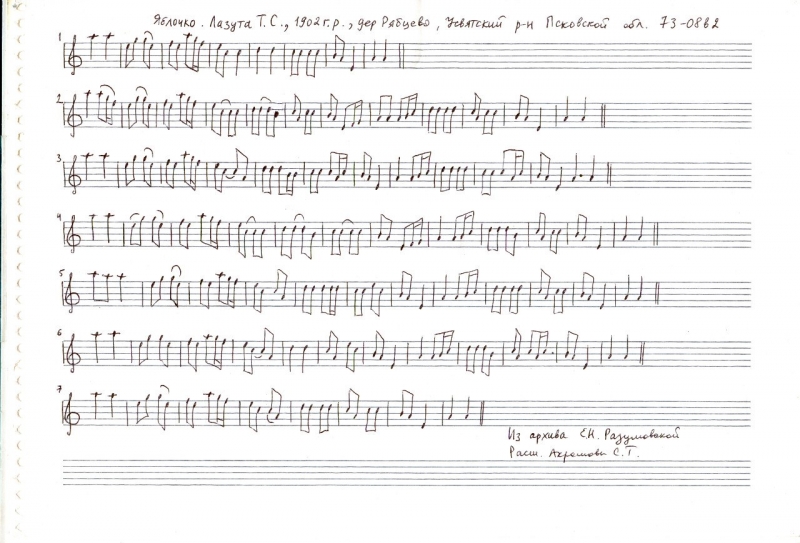 Яблочко. Лазута Т.С., 1902 г.р., дер Рябцево, Усвятский р-н Псковской обл. 73-08в2
1
2
3
4
5
6
7
Из архива Е.Н. Разумовской
Расш. С.Т.